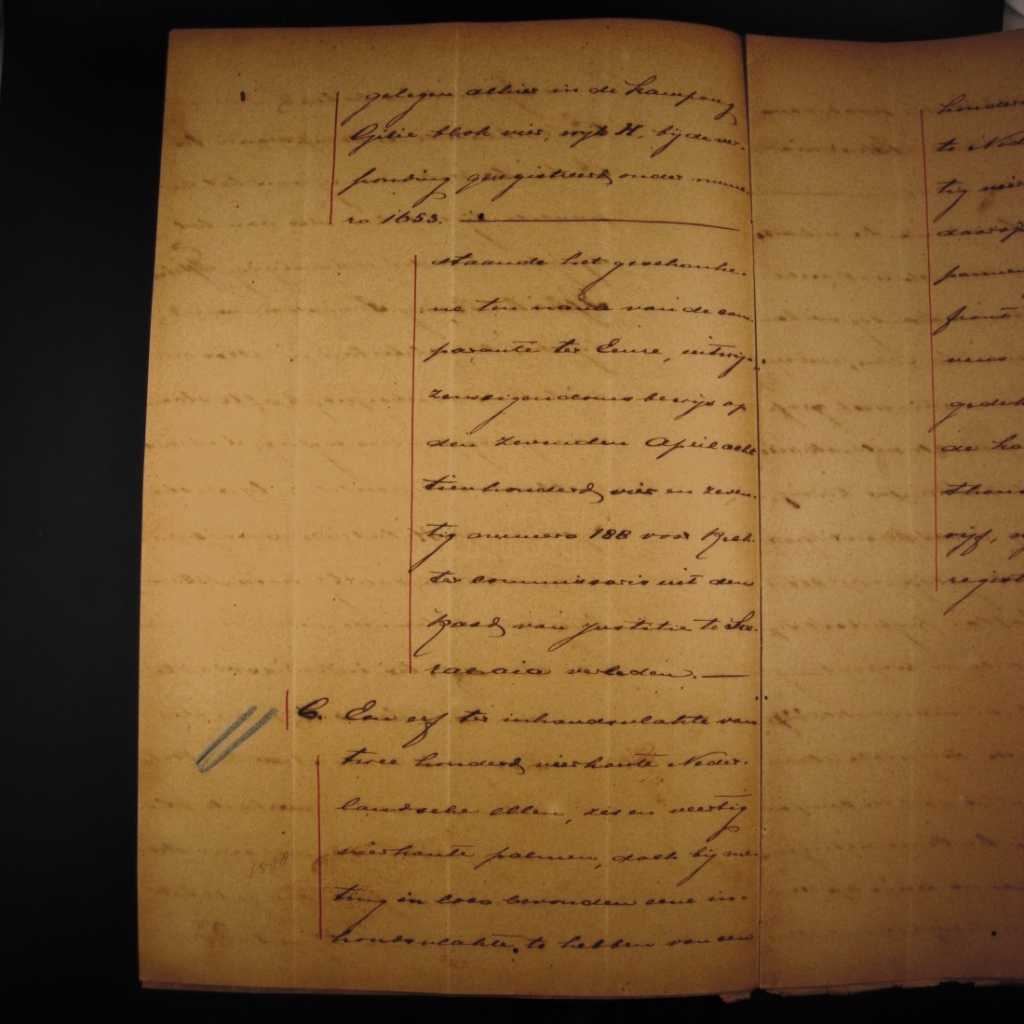 gelegen alhier in de kampong
Gilie, blok vier, wijk H, bij de ver-
ponding geregistreerd onder nume-
ro 1653.
staande het geschonke-
ne ten name van de com-
parante ter Eenre, uitwij-
zens eigendoms bewijs op
den zevenden April acht-
tienhonderd vier en zeven-
tig nummero 188 voor Rech-
ter commissaris uit den
Raad van Justitie te Soe-
rabaia verleden.
C. Een erf ter inhoudsvlakte van
twee honderd vierkante Neder-
landsche ellen, zes en veertig
vierkante palmen, doch bij me-
ting in loco bevonden eene in-
houdsvlakte te hebben van een
1588
honder
te Ned
tig vier
daarop
pannen
front
gedek
de ka
vijf, w
regist